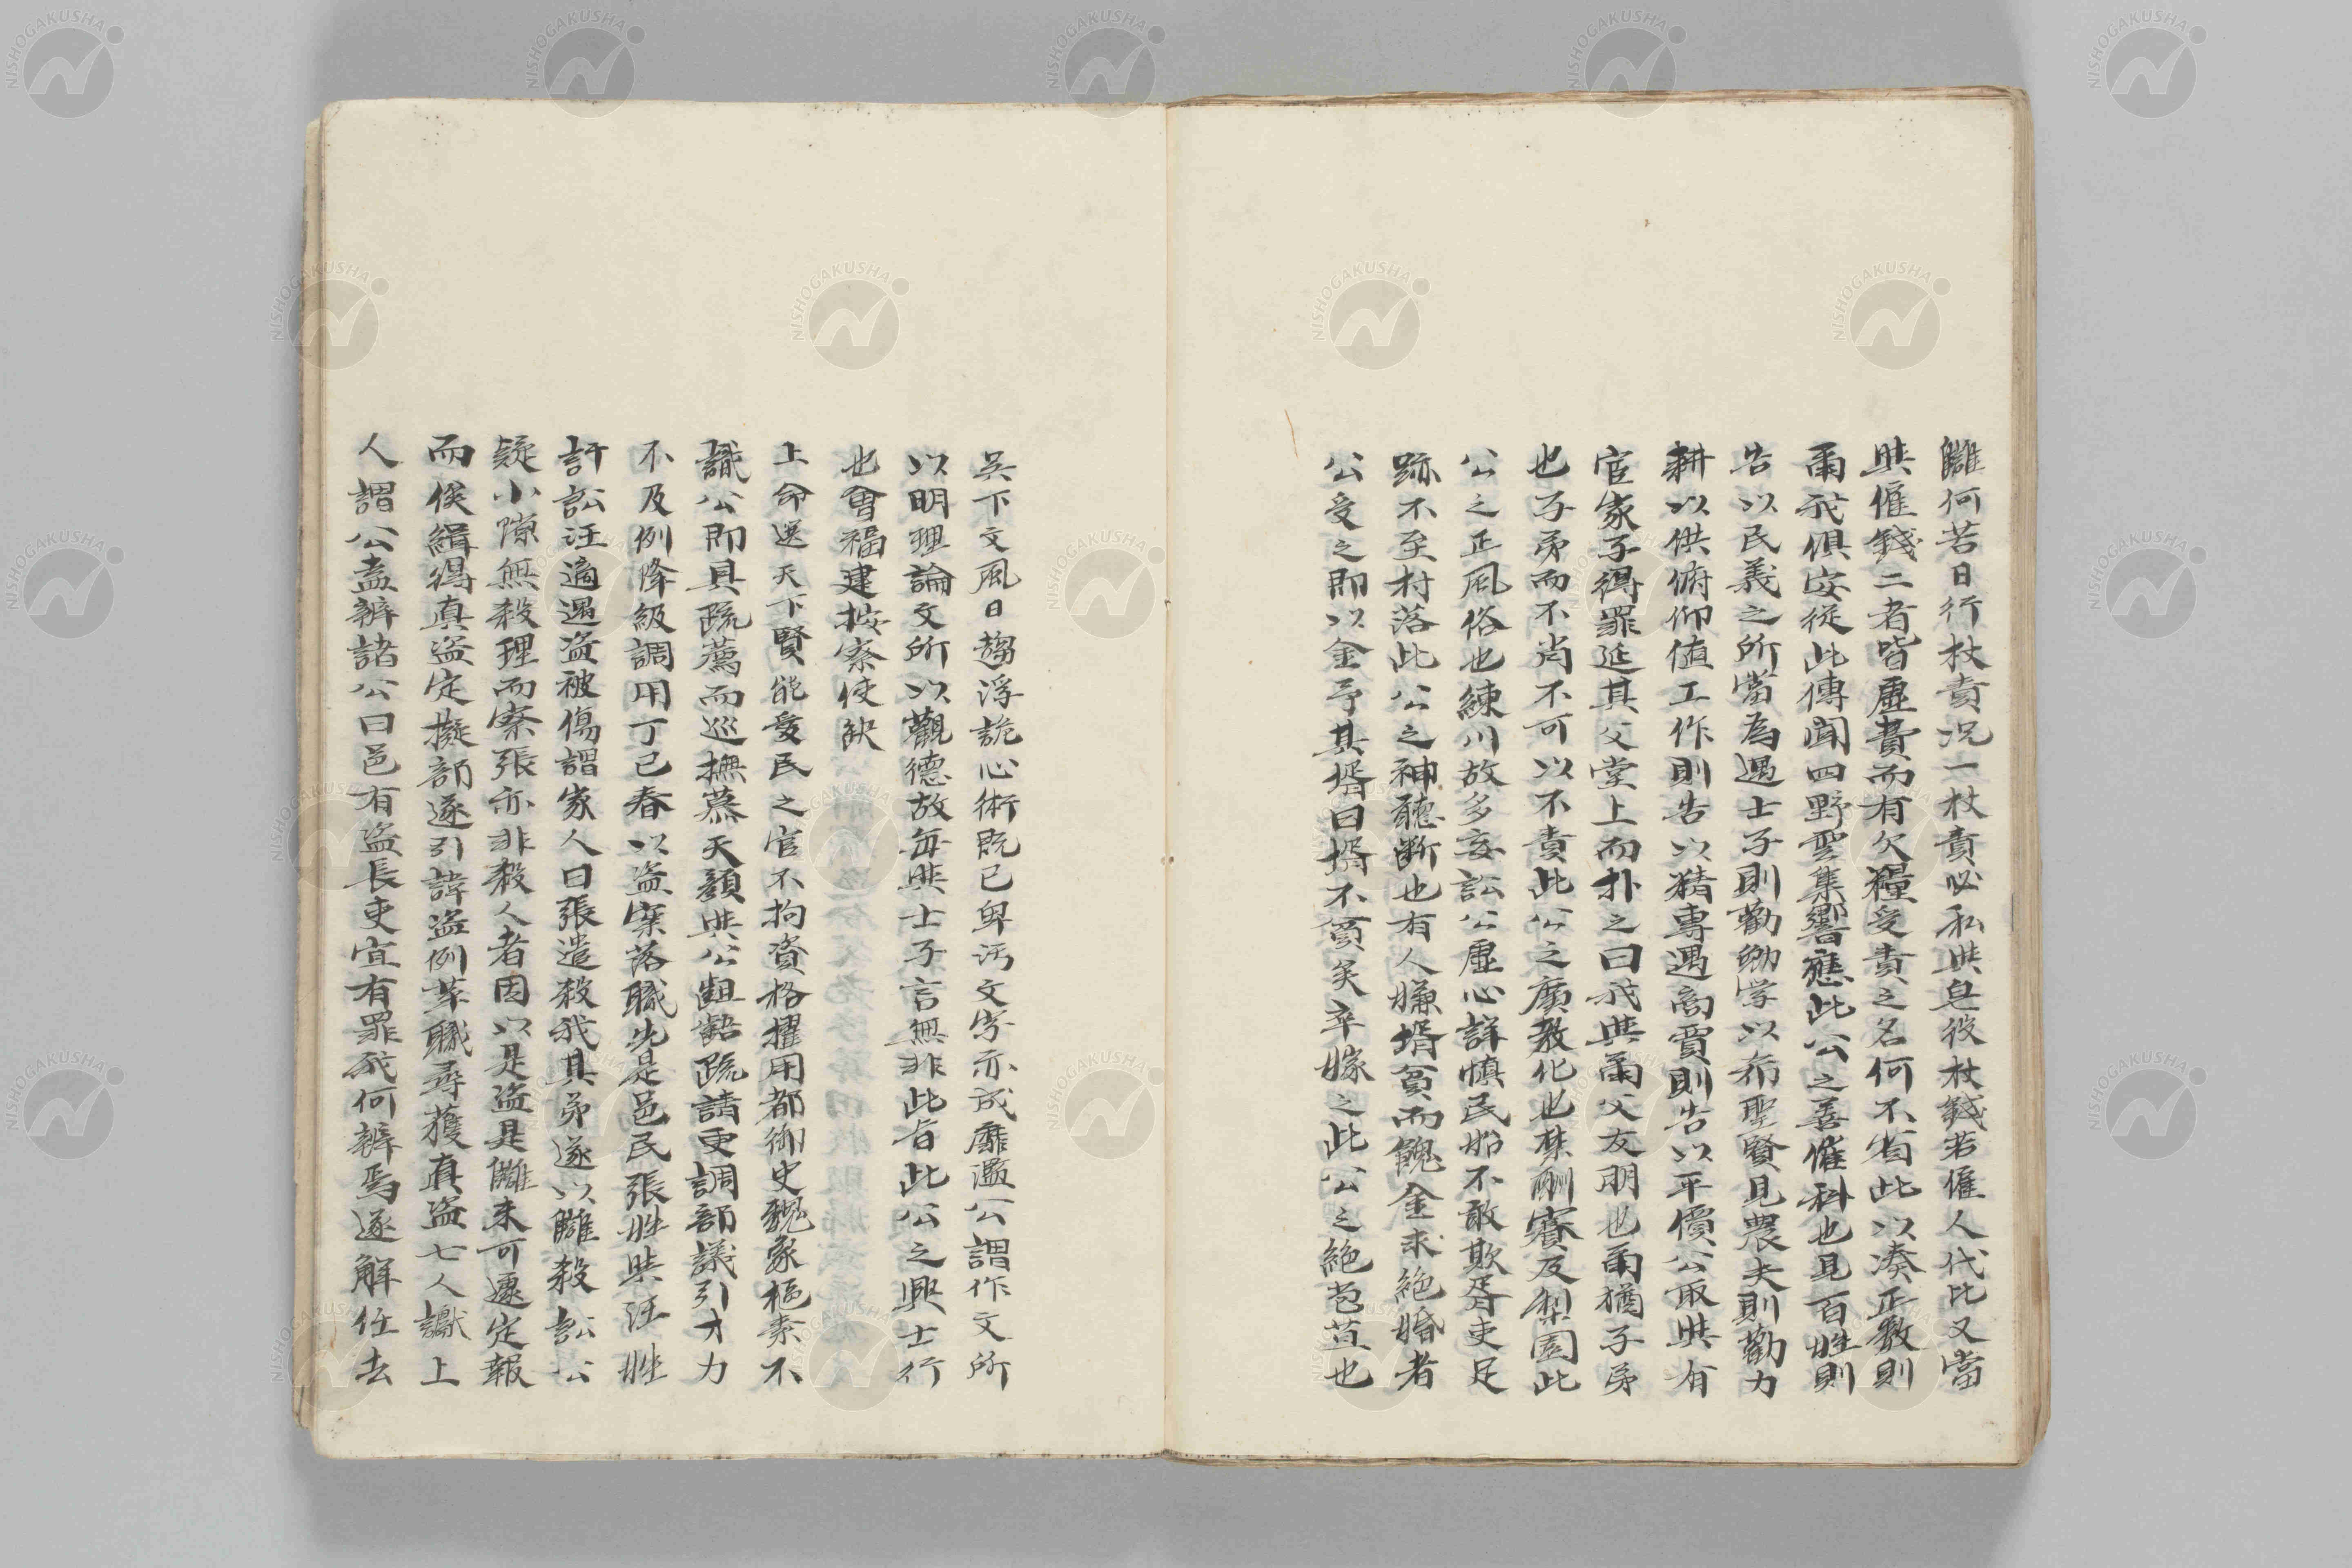 讎何苦日行杖責况一杖責必私與皂役杖錢若僱人代比又當
與僱錢二者皆虛費而有欠糧受責之名何不省此以湊正数則
爾我俱安從此傳聞四野雲集響應此公之善催科也見百姓則
告以民義之所當為遇士子則勸勉学以希聖賢見農夫則勸力
耕以供俯仰值工作則告以精專遇商賈則告以平價公取與有
宦家子得罪延其父堂上而扑之曰我與爾父友朋也爾猶子弟
也子弟而不肖不可以不責此公之廣教化也禁酬賽及梨園此
公之正風俗也練川故多妄訟公虛心詳慎民始不敢欺胥吏足
跡不至村落此公之神聽断也有人嫌壻貧而餽金求絶婚者
公受之即以金予其壻曰壻不貧矣卒嫁之此公之絶苞苴也
吳下文風日趨浮詭心術既已卑汚文字亦成靡濫公謂作文所
以明理論文所以觀德故毎與士子言無非此旨此公之興士行
也會福建按察使缺
上命選天下賢能愛民之官不拘資格擢用都御史魏象樞素不
識公即具疏薦而巡撫慕天顏與公齟齬疏請更調部議引才力
不及例降級調用丁巳春以盗案落職先是邑民張姓與汪姓
訐訟汪適遇盗被傷謂家人曰張遣殺我其弟遂以讎殺訟公
疑小隙無殺理而察張亦非殺人者因以是盗是讎未可遽定報
而俟緝得真盗定擬部遂引諱盗例革職尋獲真盗七人讞上
人謂公盍辨諸公曰邑有盗長吏宜有罪我何辨焉遂解任去
NISHOGAKUSHA